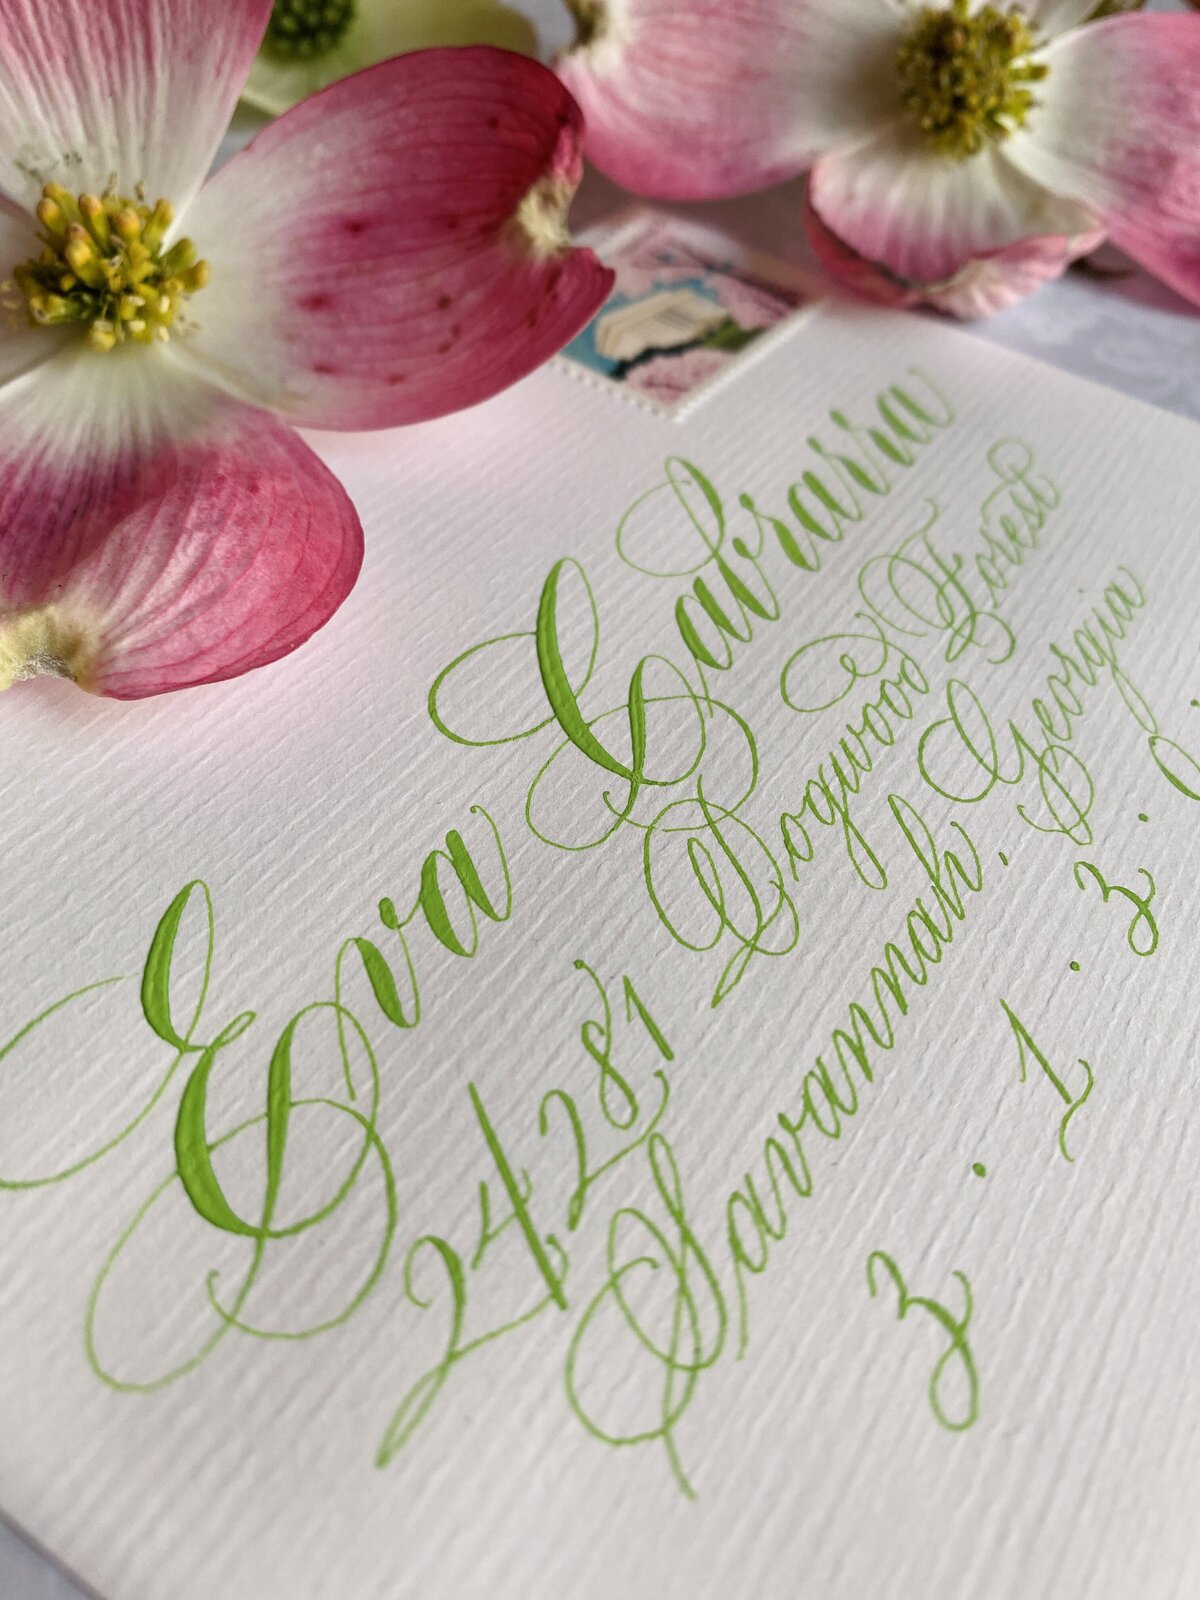 Eva
24281 Dogwood Forest
Savannah. Georgia
3 . 1 . 3 .